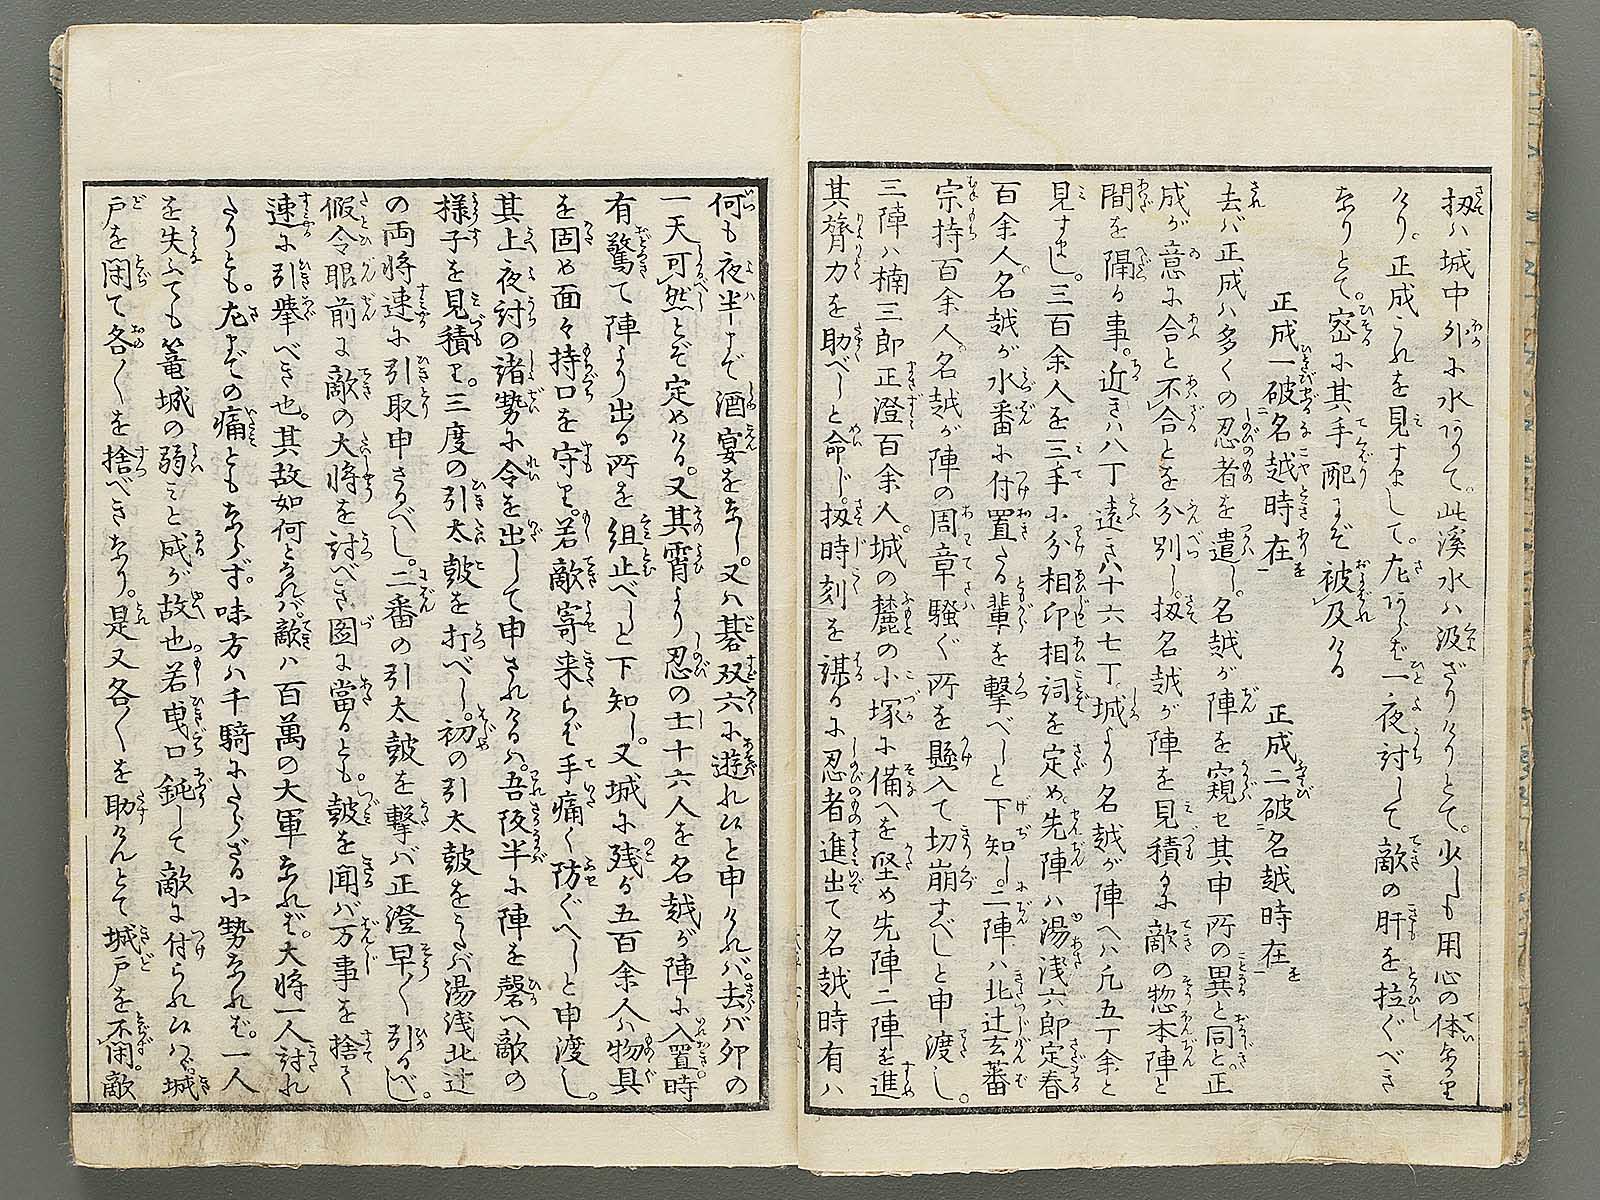 扨ハ城中外に水ありて。此渓水ハ汲ざりけりとて。少しも用心の体なかり
けり。正成これを見すまして。左あらバ一夜討して敵の肝を拉ぐべき
なりとて。密に其手配にぞ被及ける
正成一破名越時在 正成二破名越時在
去バ正成ハ多くの忍者を遣し。名越が陣を窺せ其申所の異と同と正
成が意に合と不合とを分別し。扨名越が陣を見積るに敵の惣本陣と
間を隔る事。近きハ八丁遠きハ十六七丁。城より名越が陣へハ凡五丁余と
見すまし。三百余人を三手に分相印相詞を定め。先陣ハ湯浅六郎定春
百余人。名越が水番に付置たる輩を撃べしと下知し。二陣ハ北辻玄蕃
宗持百余人。名越が陣の周章騒ぐ所を懸入て切崩すべしと申渡し。
三陣ハ楠三郎正澄百余人。城の麓の小塚に備へを堅め先陣二陣を進
其膂力を助べしと命じ。扨時刻を謀るに忍者進出て名越時有ハ
何も夜半まで酒宴をなし。又ハ碁双六に遊れ候と申ければ。去バ卯の
一天可然とぞ定めける。又其宵より忍の士十六人を名越が陣に入置時
有驚て陣より出る所を組止べしと下知し。又城に残る五百余人ハ物具
を固め面々持口を守り。若敵寄来らバ手痛く防ぐべしと申渡し。
其上夜討の諸勢に令を出して申されけるハ。吾陣半に陣を磬へ敵の
様子を見積り。三度の引太鼓を打べし。初の引太鼓をうたバ湯浅北辻
の両将速に引取申さるべし。二番の引太鼓を撃バ正澄早く引るべし。
仮令眼前に敵の大将を討べき図に當るとも。鼓を聞バ万事を捨て
速に引挙べき也。其故如何となれバ敵ハ百萬の大軍なれバ。大将一人討れ
たりとも。左までの痛ともならず。味方ハ千騎にたらざる小勢なれバ。一人
を失ふても篭城の弱ミと成が故也若曳口鈍して敵に付られ候ハヾ。城
戸を閉て各々を捨べきなり。是又各々を助けんとて城戸を不閉。敵